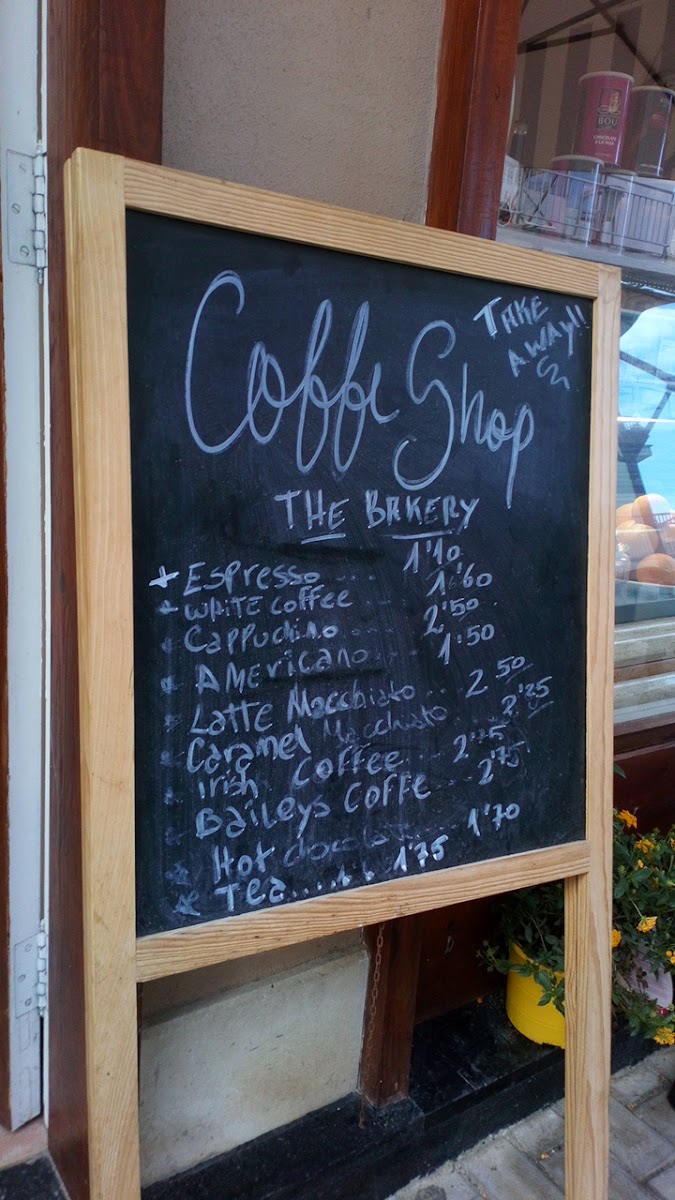 TAKE
AWAY!!
Coffe Shop
THE BAKERY
Espresso ... 1'10
WHITE coffee ... 1'60
Cappuchino ... 2'50
AMERicano ... 1'50
LATTE Macchiato .. 2'50
Caramel Macchiato ..
Irish Coffee .. 2'75
Baileys COFFE .. 2'75
Hot chocolate ... 1'70
Tea ..... 1'75